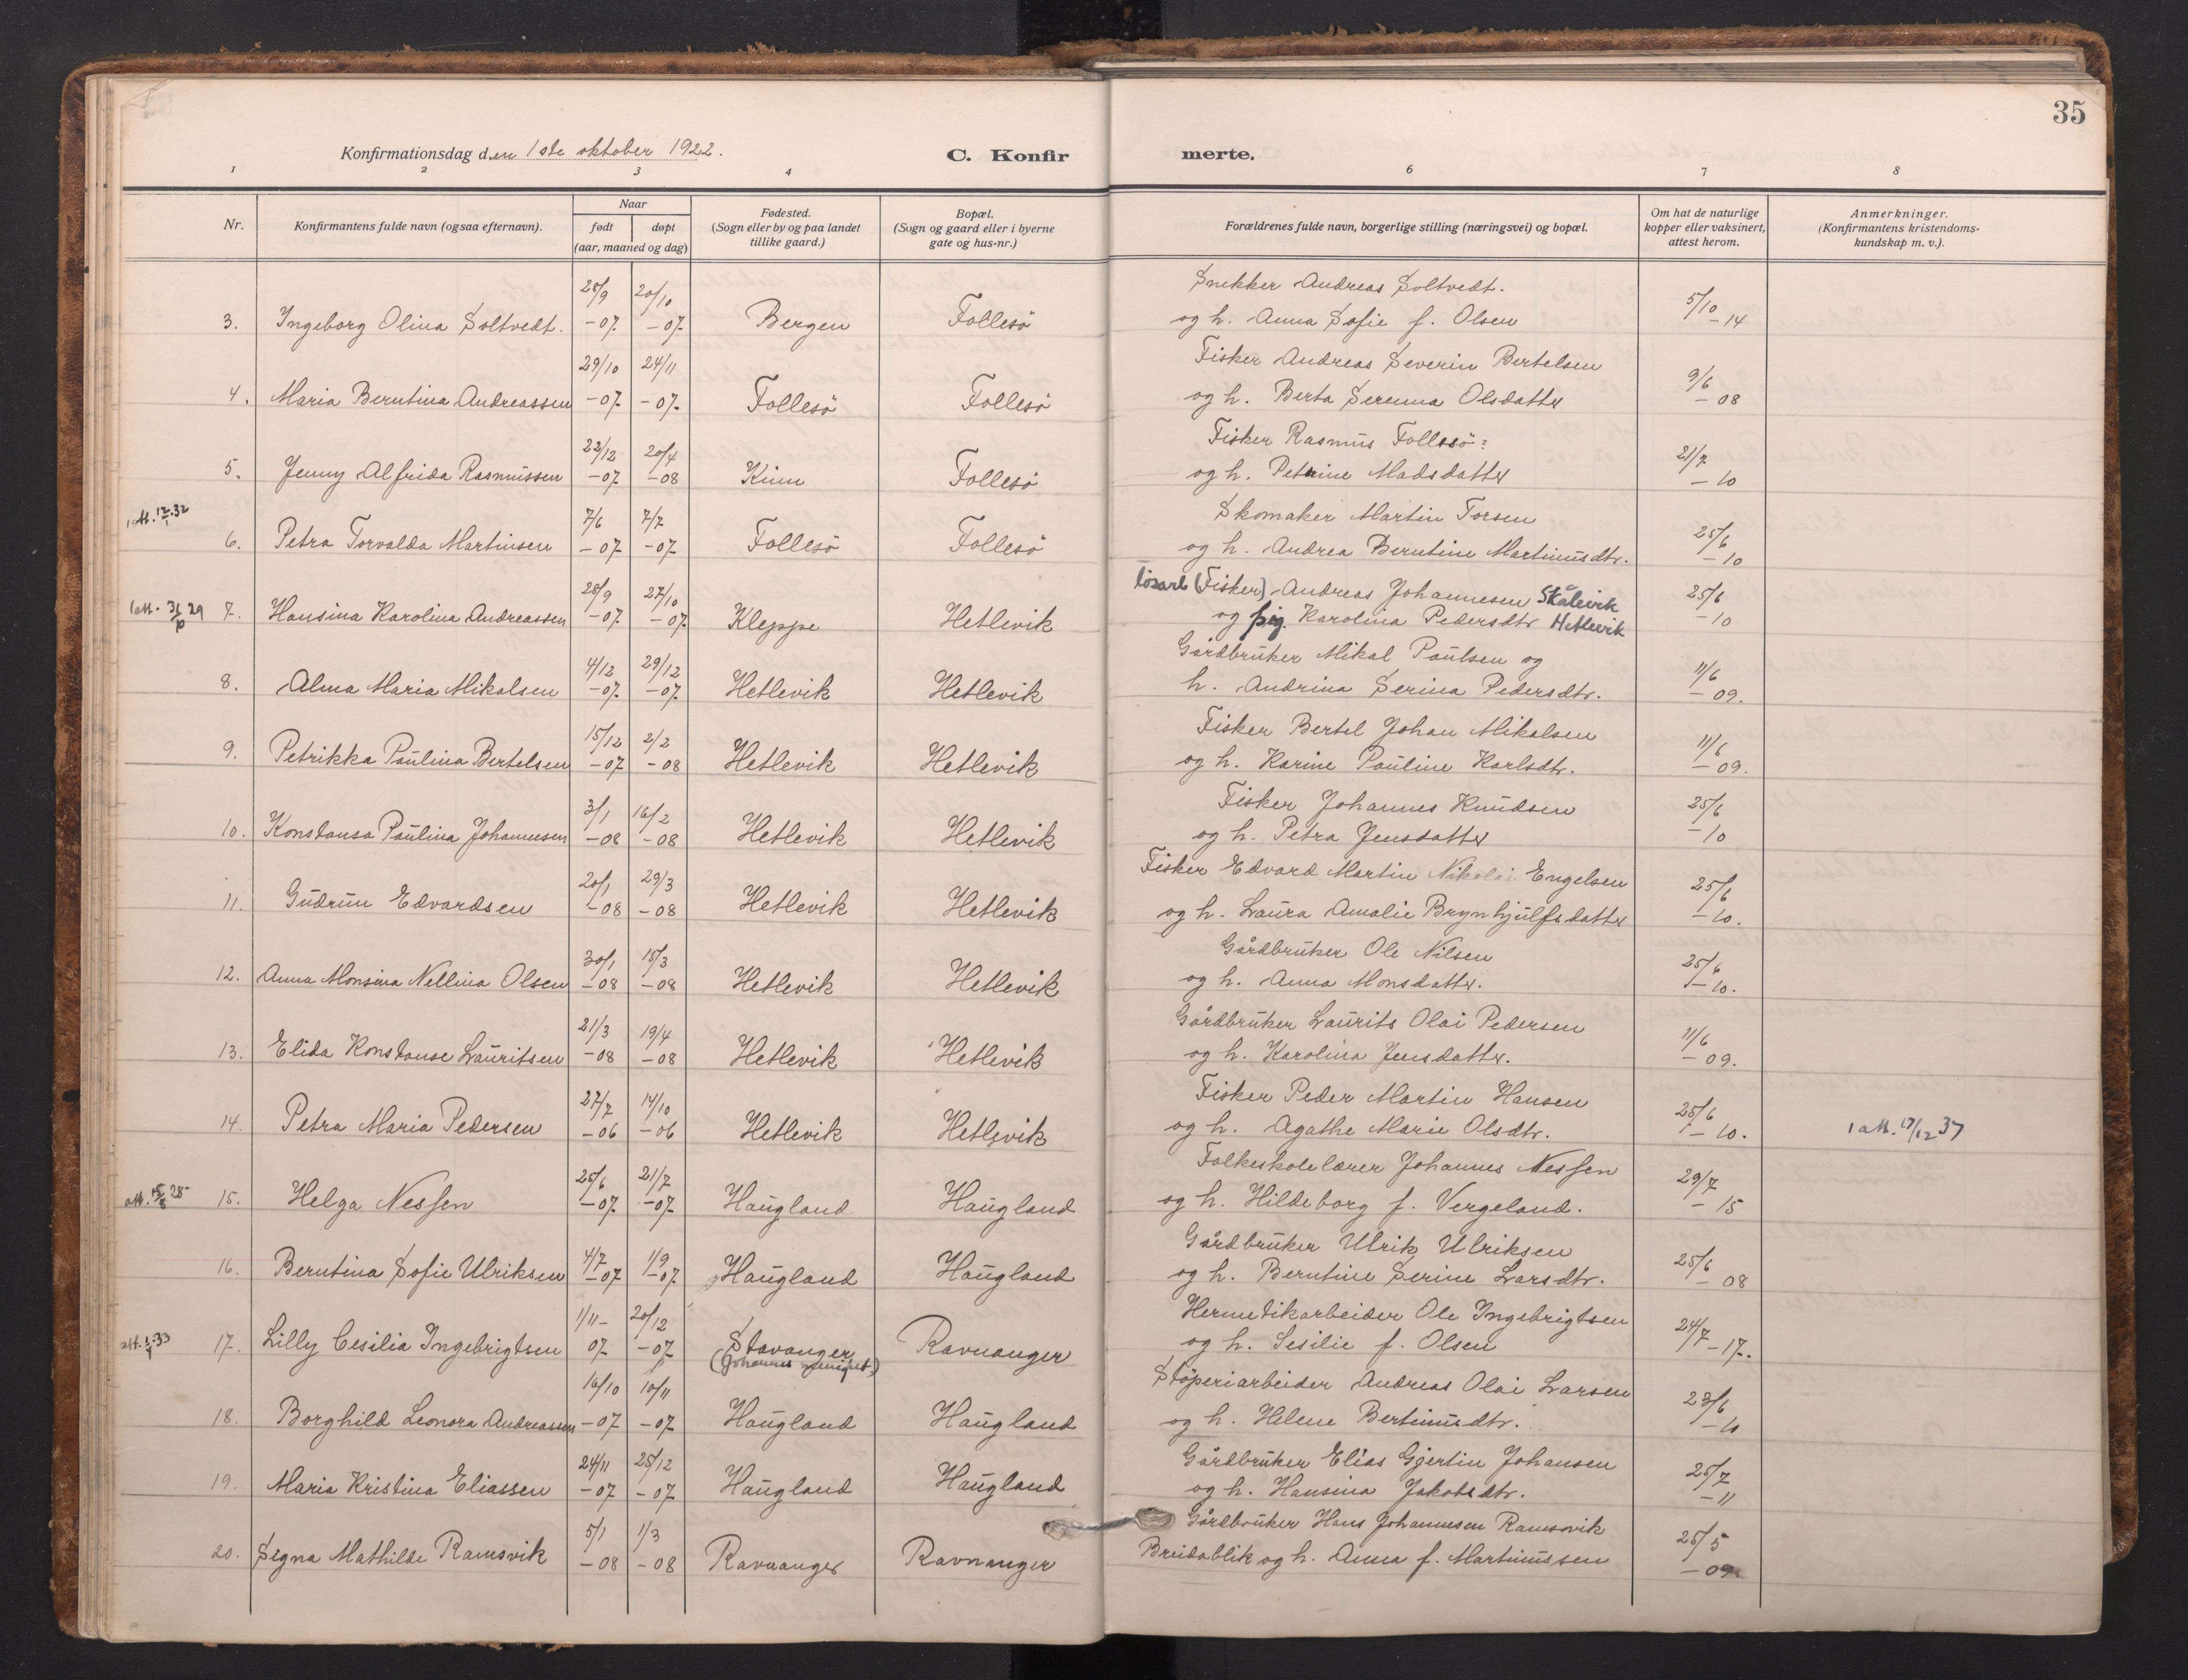 35
Konfirmationsdag den 1ste oktober 1922.
C. Konfir
merte.
1 2 3 4 6 7 8
Nr.
Konfirmantens fulde navn (ogsaa efternavn).
Naar
født døpt
(aar, maaned og dag)
Fødested.
(Sogn eller by og paa landet
tillike gaard.)
Bopæl.
(Sogn og gaard eller i byerne
gate og hus-nr.)
Forældrenes fulde navn, borgerlige stilling (næringsvei) og bopæl.
Om hat de naturlige
kopper eller vaksinert,
attest herom.
Anmerkninger.
(Konfirmantens kristendoms-
kundskap m. v.).
28/9 20/10 Snekker Andreas Soltvedt. 5/10
3. Ingeborg Olina Soltvedt. -07 -07 Bergen Follesö og h. Anna Sofie f. Olsen -14
29/10 24/11 Fisker Andreas Severin Bertelsen 9/6
4. Maria Berntina Andreassen -07 -07 Follesö Follesö og h. Berta Serenna Olsdatter -08
22/12 20/4 Fisker Rasmus Follesö: 21/7
5. Jenny Alfrida Rasmussen -07 -08 Kinn Follesö og h. Petrine Madsdatter -10
1 att. 12/1.32 7/6 7/7 Skomaker Martin Torsen 25/6
6. Petra Torvalda Martinsen -07 -07 Follesö Follesö og h. Andrea Berntine Martinusdtr. -10
28/9 27/10 lösarb (Fisker) Andreas Johannesen Skålevik 25/6
1 att. 31/10 29 7. Hansina Karolina Andreassen -07 -07 Kleppe Hetlevik og pig. Karolina Pedersdtr Hetlevik -10
4/12 29/12 Gårdbruker Mikal Paulsen og 11/6
8. Alma Maria Mikalsen -07 -07 Hetlevik Hetlevik h. Andrina Serina Pedersdtr. -09.
15/12 2/2 Fisker Bertel Johan Mikalsen 11/6
9. Petrikka Paulina Bertelsen -07 -08 Hetlevik Hetlevik og h. Karine Pauline Karlsdtr. -09.
3/1 16/2 Fisker Johannes Knudsen 25/6
10. Konstansa Paulina Johannesen -08 -08 Hetlevik Hetlevik og h. Petra Jensdatter -10
20/1 29/3 Fisker Edvard Martin Nikolai Engelsen 25/6
11. Gudrun Edvardsen -08 -08 Hetlevik Hetlevik og h. Laura Amalie Brynhjulfsdatter -10.
30/1 15/3 Gårdbruker Ole Nilsen 25/6
12. Anna Monsina Nellina Olsen -08 -08 Hetlevik Hetlevik og h. Anna Monsdatter. -10.
21/3 19/4 Gårdbruker Laurits Olai Pedersen 11/6
13. Elida Konstanse Lauritsen -08 -08 Hetlevik Hetlevik og h. Karolina Jensdatter. -09.
27/7 14/10 Fisker Peder Martin Hansen 25/6
14. Petra Maria Pedersen -06 -06 Hetlevik Hetlevik og h. Agathe Marie Olsdtr. -10. 1 att. 17/12 37
25/6 21/7 Folkeskolelærer Johannes Nessen 29/7
att. 15/8 28 15. Helga Nessen -07 -07 Haugland Haugland og h. Hildeborg f. Vergeland. -15
4/7 1/9 Gårdbruker Ulrik Ulriksen 25/6
16. Berntina Sofie Ulriksen -07 -07 Haugland Haugland og h. Berntine Serine Larsdtr. -08
1/11- 20/12 Hermetikarbeider Ole Ingebrigtsen 24/7
att. 1/1.33 17. Lilly Cesilia Ingebrigtsen 07 -07 Stavanger Ravnanger og h. Sesilie f. Olsen -17.
(Johannes menighet)
16/10 10/11 Stöperiarbeider Andreas Olai Larsen 23/6
18. Borghild Leonora Andreassen -07 -07 Haugland Haugland og h. Helene Bertinusdtr. -11
24/11 25/12 Gårdbruker Elias Gjertin Johansen 25/7
19. Maria Kristina Eliassen -07 -07 Haugland Haugland og h. Hansina Jakobsdtr. -11
5/1 1/3 Gårdbruker Hans Johannesen Ramsvik 25/5
20. Signa Mathilde Ramsvik -08 -08 Ravnanger Ravnanger Breidablik og h. Anna f. Martinussen -09